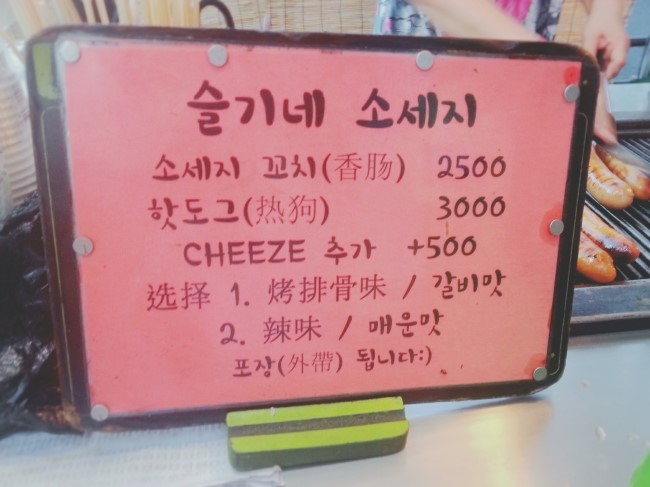 슬기네 소세지
소세지 꼬치(香肠) 2500
핫도그(热狗) 3000
CHEEZE 추가 +500
选择 1. 烤排骨味 / 갈비맛
2. 辣味 / 매운맛
포장(外帶) 됩니다:)